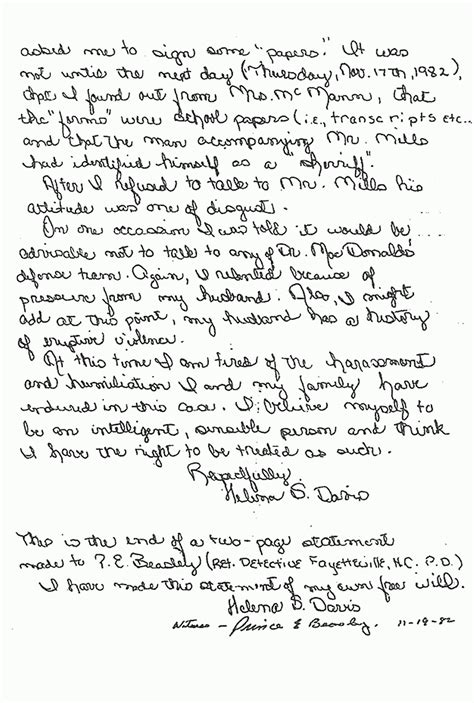 asked me to sign some "papers." It was
not until the next day (Thursday, Nov. 17th, 1982),
that I found out from Mrs. McMann, that
the "forms" were school papers (i.e., transcripts etc..
and that the man accompanying Mr. Mills
had identified himself as a "sherriff".
After I refused to talk to Mr. Mills his
attitude was one of disgust.
On one occasion I was told it would be
advisable not to talk to any of Dr. MacDonald's
defense team. Again, I relented because of
pressure from my husband. Also, I might
add at this point, my husband has a history
of eruptive violence.
At this time I am tired of the harassment
and humiliation I and my family have
endured in this case. I believe myself to
be an intelligent, sensible person and think
I have the right to be treated as such.
Respectfully
Helena S. Davis
This is the end of a two-page statement
made to P. E. Beasley (Ret. Detective Fayetteville, N.C. P.D.)
I have made this statement of my own free will.
Helena S. Davis
Witness - Prince E Beasley. 11-18-82